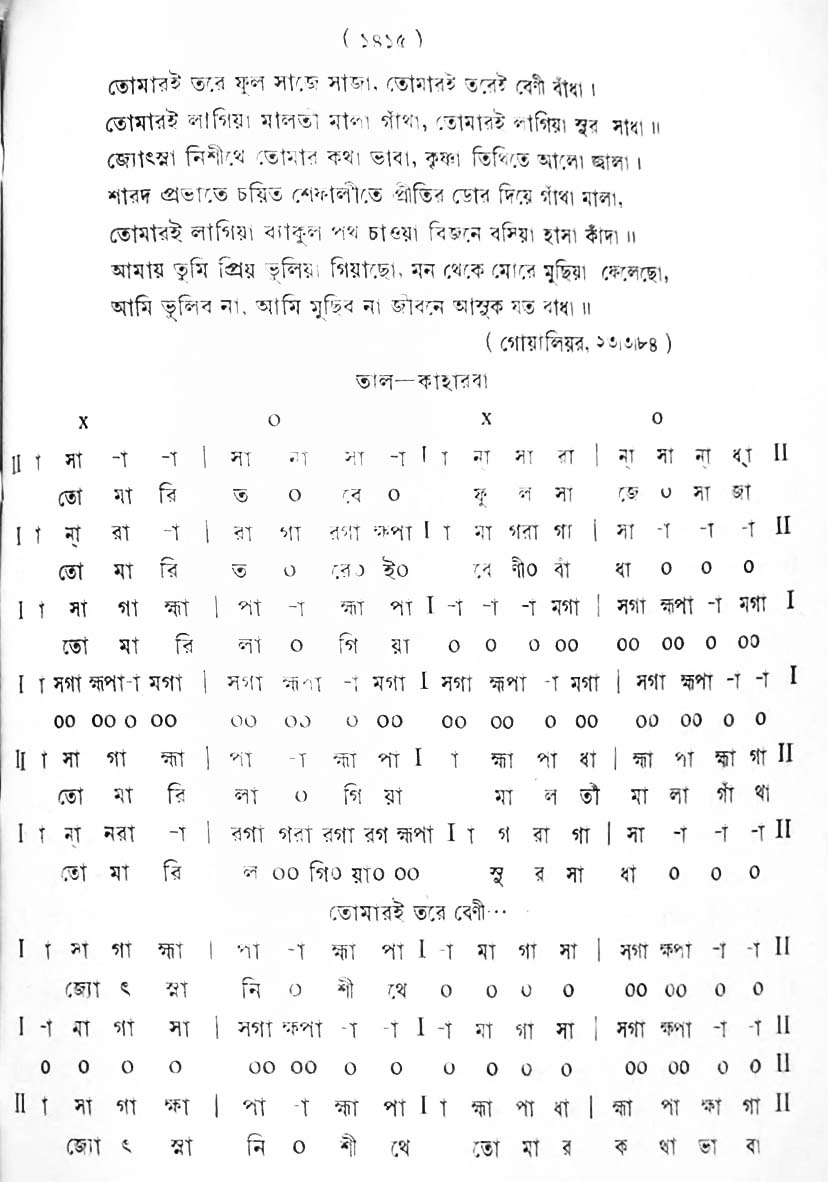 ( ১৪১৫ )
তোমারই তরে ফুল সাজে সাজা, তোমারই তরেই বেণী বাঁধা ।
তোমারই লাগিয়া মালতী মালা গাঁথা, তোমারই লাগিয়া সুর সাধা ॥
জ্যোৎস্না নিশীথে তোমার কথা ভাবা, কৃষ্ণা তিথিতে আলো জ্বালা ।
শারদ প্রভাতে চয়িত শেফালীতে প্রীতির ডোর দিয়ে গাঁথা মালা,
তোমারই লাগিয়া ব্যাকুল পথ চাওয়া বিজনে বসিয়া হাসা কাঁদা ॥
আমায় তুমি প্রিয় ভুলিয়া গিয়াছো, মন থেকে মোরে মুছিয়া ফেলেছো,
আমি ভুলিব না, আমি মুছিব না জীবনে আসুক যত বাধা ॥
( গোয়ালিয়র, ২৩৷৩৷৮৪ )
তাল—কাহারবা
x ০ x ০
II া সা -া -া | সা না সা -া I া না সা রা | ন্া সা ন্া ধ্া II
তো মা রি ত ০ রে ০ ফু ল সা জে ০ সা জা
I া ন্া রা -া | রা গা রগা ক্ষপা I া মা গরা গা | সা -া -া -া II
তো মা রি ত ০ রে০ ই০ বে ণী০ বাঁ ধা ০ ০ ০
I া সা গা হ্মা | পা -া হ্মা পা I -া -া -া মগা | সগা হ্মপা -া মগা I
তো মা রি লা ০ গি য়া ০ ০ ০ ০০ ০০ ০০ ০ ০০
I া সগা হ্মপা -া মগা | সগা হ্মপা -া মগা I সগা হ্মপা -া মগা | সগা হ্মপা -া -া I
০০ ০০ ০ ০০ ০০ ০০ ০ ০০ ০০ ০০ ০ ০০ ০০ ০০ ০ ০
II া সা গা হ্মা | পা -া হ্মা পা I া হ্মা পা ধা | হ্মা পা হ্মা গা II
তো মা রি লা ০ গি য়া মা ল তী মা লা গাঁ থা
I া ন্া নরা -া | রগা গরা রগা রগ হ্মপা I া গ রা গা | সা -া -া -া II
তো মা রি ল ০০ গি০ য়া০ ০০ সু র সা ধা ০ ০ ০
তোমারই তরে বেণী···
I া সা গা হ্মা | পা -া হ্মা পা I -া মা গা সা | সগা ক্ষপা -া -া II
জ্যো ৎ স্না নি ০ শী থে ০ ০ ০ ০ ০০ ০০ ০ ০
I -া মা গা সা | সগা ক্ষপা -া -া I -া মা গা সা | সগা ক্ষপা -া -া II
০ ০ ০ ০ ০০ ০০ ০ ০ ০ ০ ০ ০ ০০ ০০ ০ ০ II
II া সা গা ক্ষা | পা -া হ্মা পা I া হ্মা পা ধা | হ্মা পা ক্ষা গা II
জ্যো ৎ স্না নি ০ শী থে তো মা র ক থা ভা বা